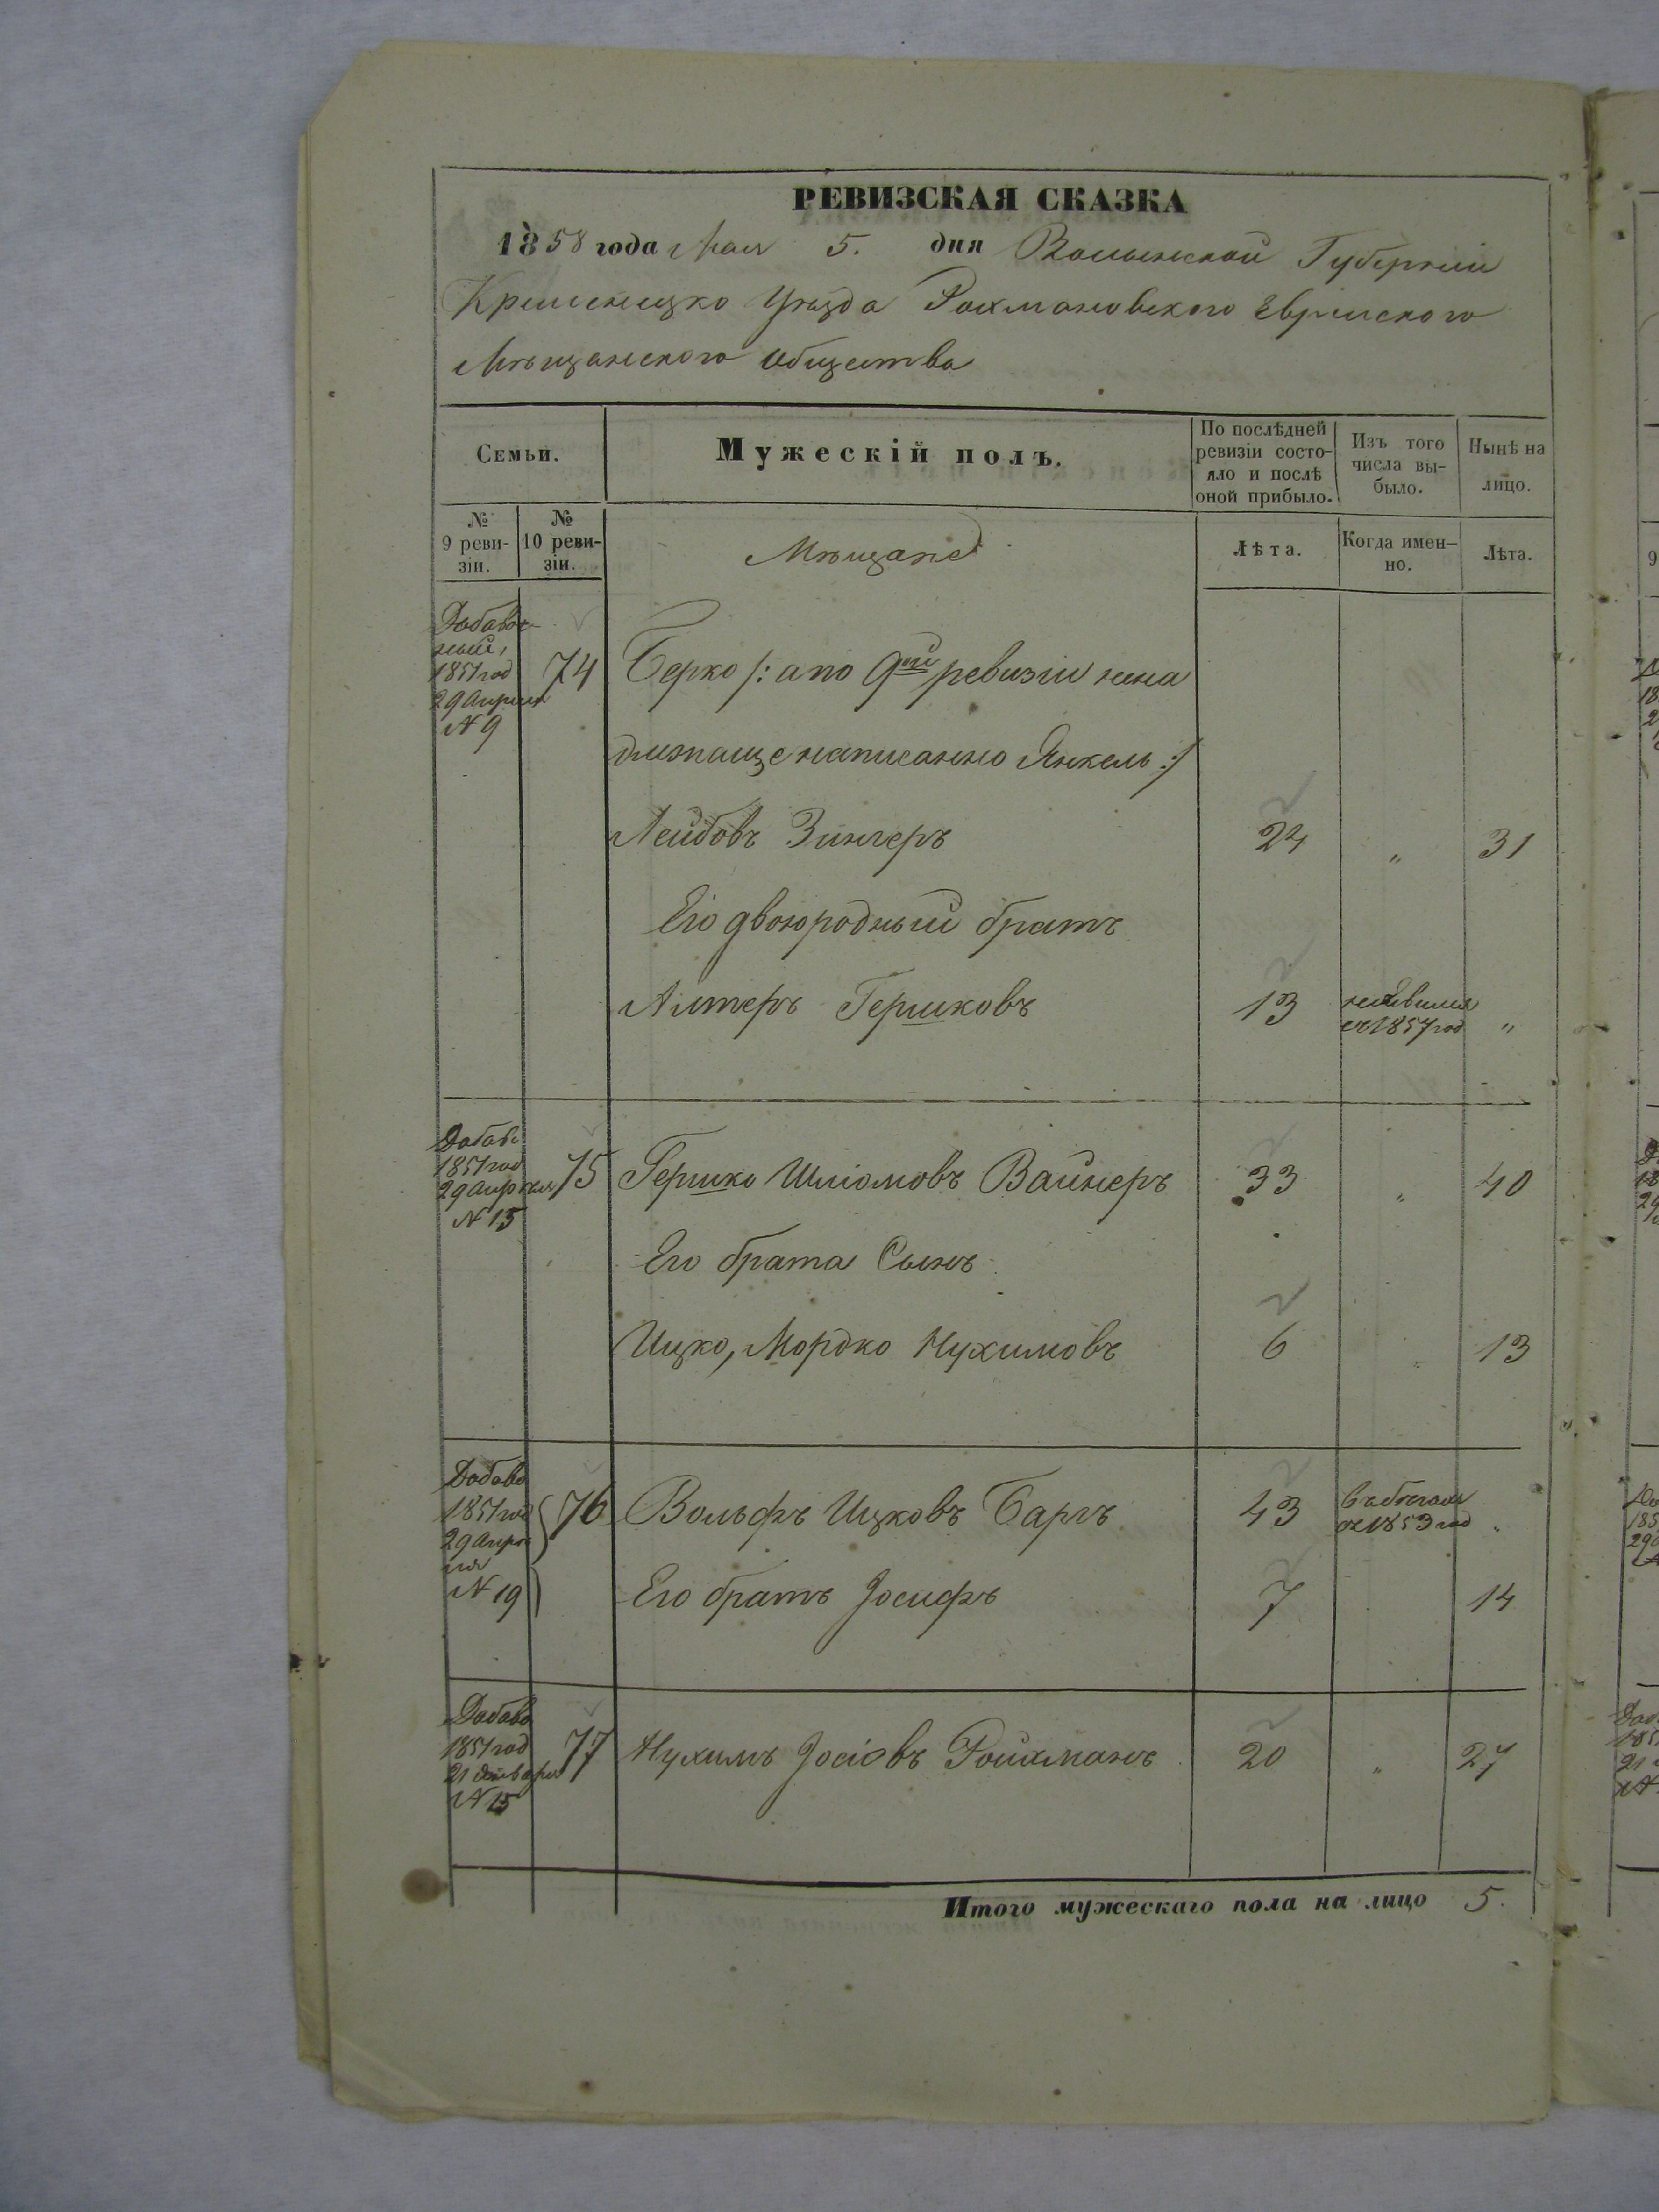 РЕВИЗСКАЯ СКАЗКА
1858 года Мая 5. дня Волынской Губерніи
Кременецко Уѣзда Рохмановского Еврейского
Мѣщанского Общества
Семьи.
Мужескій полъ.
По послѣдней ревизіи состо-
яло и послѣ оной прибыло.
Изъ того числа вы-
было.
Нынѣ на лицо.
№ 9 реви-
зіи.
№ 10 реви-
зіи.
Мѣщане
Лѣта.
Когда имен-
но.
Лѣта.
Добавоч-
ный,
1851 год
29 Апреля
№ 9
74 Берко /: а по 9ой ревизіи нена
длежаще написанно Янкель :/
Лейбовъ Зингеръ 24 „ 31
Его двоюродный братъ
Алтеръ Гершковъ 13 неявился
съ 1857 год „
Добаво
1851 год
29 Апреля
№ 15
75 Гершко Шліомовъ Вайнеръ 33 „ 40
Его брата Сынъ
Ицко, Мордко Нухимовъ 6 „ 13
Добаво
1851 год
29 Апре
ля
№ 19
76 Вольфъ Ицковъ Баргъ 43 в бегах
съ 1853 год „
Его братъ Іосифъ 7 14
Добаво
1851 год
21 Января
№ 15
77 Нухимъ Іосіовъ Ройхманъ 20 „ 27
Итого мужескаго пола на лицо 5.